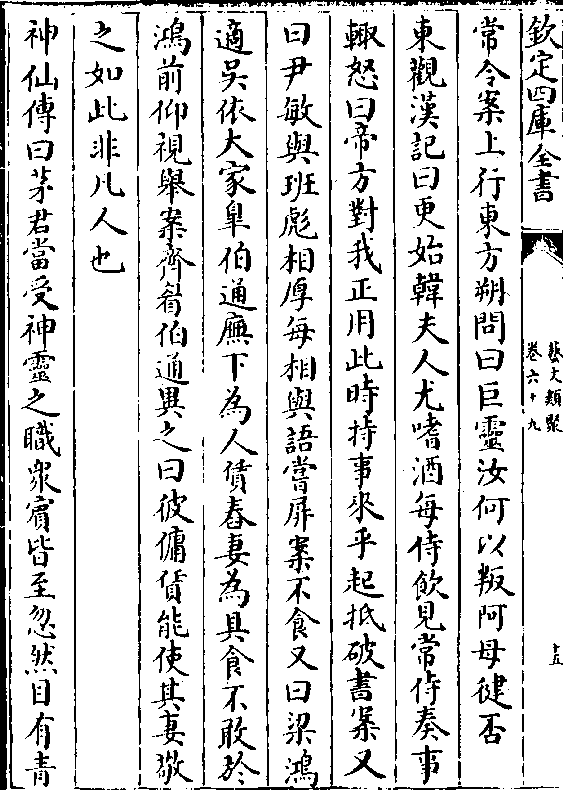 欽定四庫全書
藝文類聚
卷六十九
十五
常令案上行東方朔問曰巨靈汝何以叛阿母健否
東觀漢記曰更始韓夫人尤嗜酒每侍飲見常侍奏事
輙怒曰帝方對我正用此時持事來乎起抵破書案又
曰尹敏與班彪相厚每相與語嘗屏案不食又曰梁鴻
適吳依大家臯伯通廡下為人賃舂妻為具食不敢於
鴻前仰視舉案齊眉伯通異之曰彼傭賃能使其妻敬
之如此非凡人也
神仙傳曰茅君當受神靈之職衆賓皆至忽然自有青